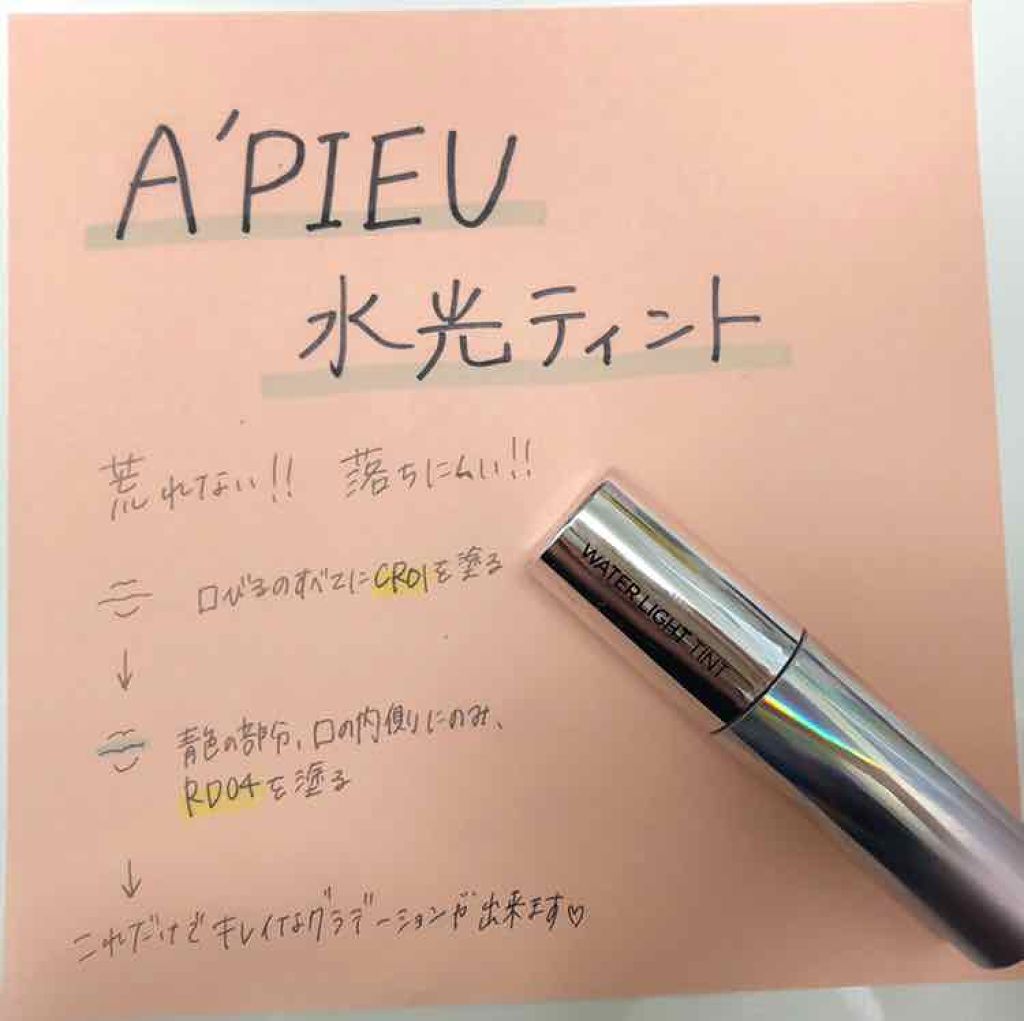 A'PIEU
水光ティント
荒れない!! 落ちにくい!!
口びるのすべてにCR01を塗る
↓
青色の部分、口の内側にのみ、
RD04を塗る
↓
これだけでキレイなグラデーションが出来ます♡
WATER LIGHT TINT